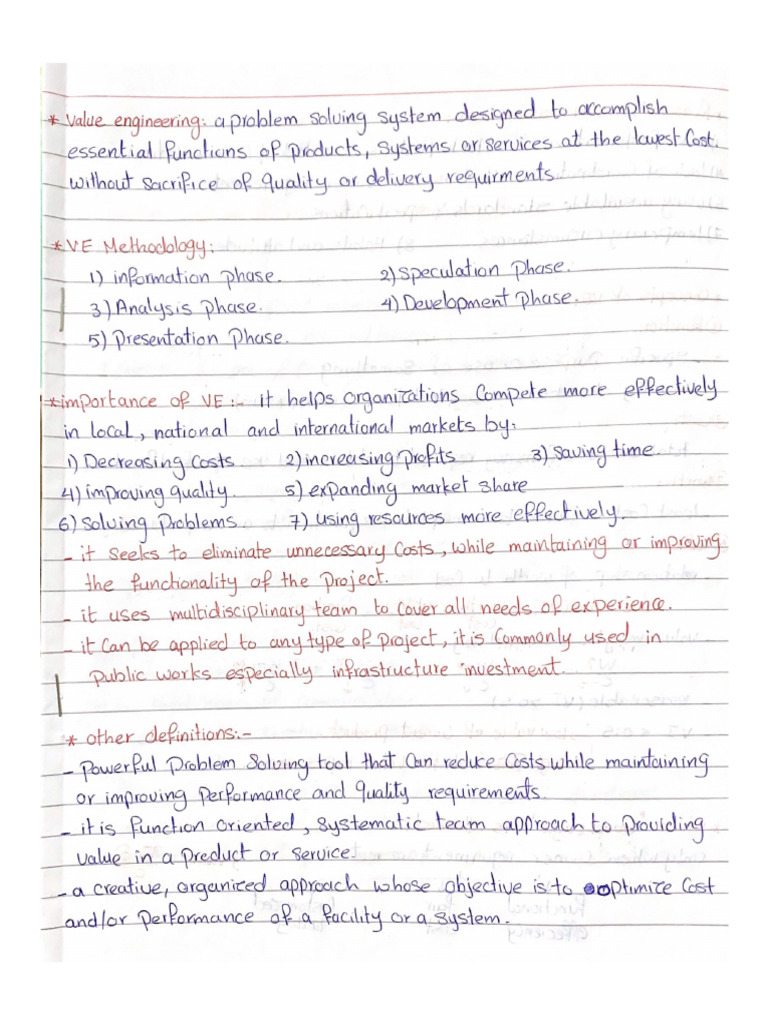 * Value engineering: a problem solving system designed to accomplish
essential functions of products, systems or services at the lowest cost.
without sacrifice of quality or delivery requirments.
* VE Methodology:
1) information phase. 2) Speculation Phase.
3) Analysis phase. 4) Development phase.
5) Presentation Phase.
* importance of VE :- it helps organizations compete more effectively
in local, national and international markets by:
1) Decreasing costs 2) increasing profits 3) Saving time.
4) improving quality. 5) expanding market share
6) Solving Problems 7) using resources more effectively.
- it seeks to eliminate unnecessary costs, while maintaining or improving
the functionality of the project.
- it uses multidisciplinary team to cover all needs of experience.
- it can be applied to any type of project, it is commonly used in
public works especially infrastructure investment.
* other definitions:-
- Powerful Problem Solving tool that can reduce costs while maintaining
or improving performance and quality requirements.
- it is function oriented, systematic team approach to providing
value in a product or service.
- a creative, organized approach whose objective is to optimize cost
and/or performance of a facility or a system.